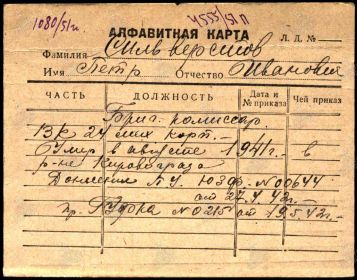 1080/51г. 4555/51 П
АЛФАВИТНАЯ КАРТА Л. Д. №
Фамилия Сильверстов
Имя Петр Отчество Иванович
ЧАСТЬ ДОЛЖНОСТЬ Дата и № приказа Чей приказ
Бриг. комиссар
ВК 24 мех корп.
Умер в августе 1941 г. в
р-не Кировограда
Донесение ПУ ЮЗФ. № 00644
от 27.4.42 г.
пр. ГУФРКА № 0215 от 19.5.42 г.